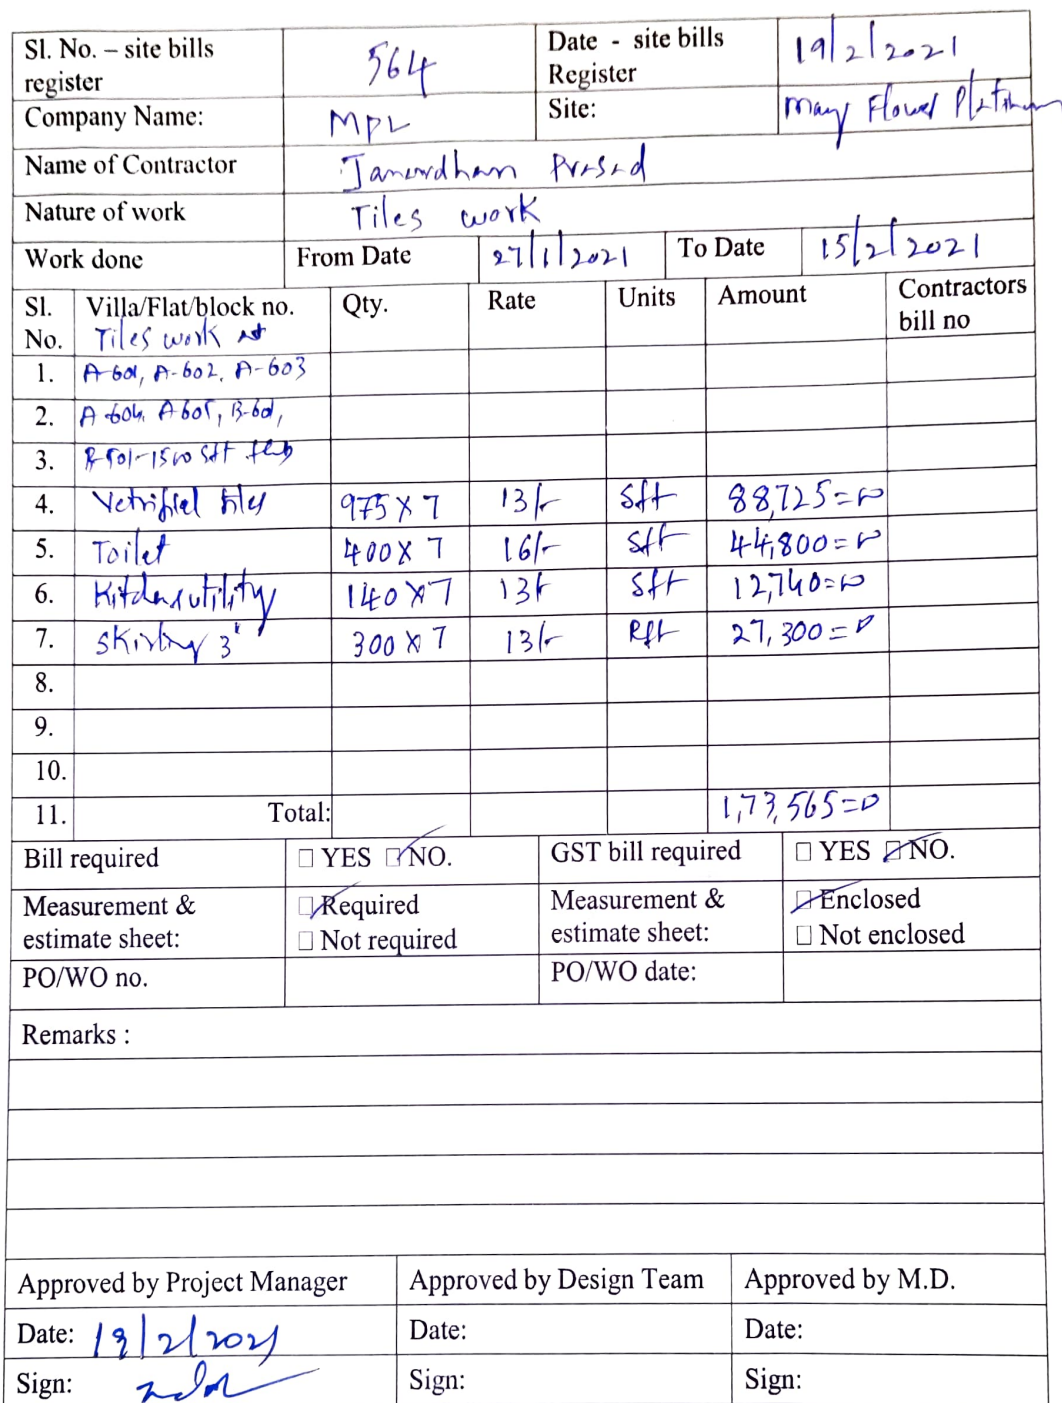 Sl. No. – site bills register 564 Date - site bills Register 19/2/2021
Company Name: MPL Site: May Flower Platinum
Name of Contractor Janardhan Prasad
Nature of work Tiles work
Work done From Date 27/1/2021 To Date 15/2/2021
Sl. No. Villa/Flat/block no. Qty. Rate Units Amount Contractors bill no
Tiles work at
1. A-601, A-602, A-603
2. A-604, A-605, B-601,
3. B-501-1500 Sft
4. Vetrified tiles 975 X 7 13/- Sft 88,725=00
5. Toilet 400 X 7 16/- Sft 44,800=00
6. Kitchen utility 140 X 7 13/- Sft 12,740=00
7. Skirting 3" 300 X 7 13/- Rft 27,300=00
8.
9.
10.
11. Total: 1,73,565=00
Bill required □ YES □ NO. GST bill required □ YES □ NO.
Measurement & estimate sheet: □ Required □ Not required Measurement & estimate sheet: □ Enclosed □ Not enclosed
PO/WO no. PO/WO date:
Remarks :
Approved by Project Manager Approved by Design Team Approved by M.D.
Date: 19/2/2021 Date: Date:
Sign: Sign: Sign: